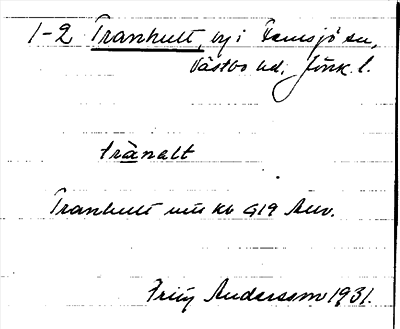 1-2 Tranhult, by i Femsjö sn,
Västbo hd; Jönk. l.
trànalt
Tranhult utn kb G19 Auv.
Fritz Andersson 1931.